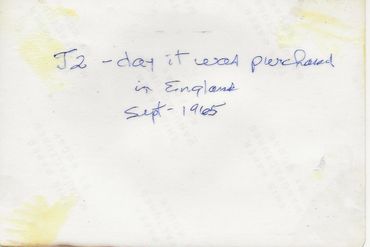 J2 - day it was purchased
in England
Sept - 1965